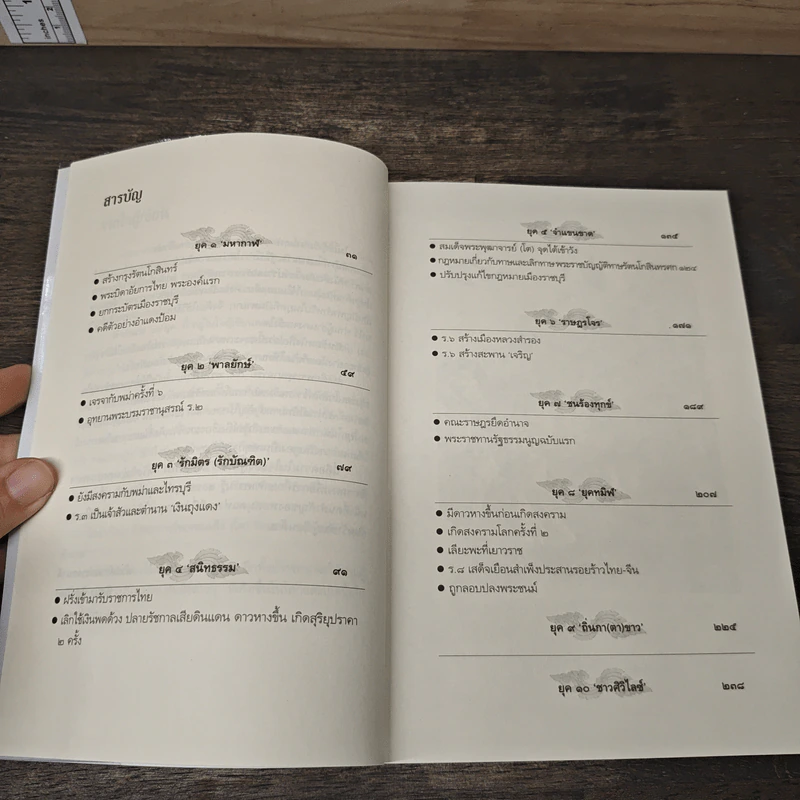 1
inches 2
สารบัญ
ยุค ๑ 'มหากาฬ' ๓๑
● สร้างกรุงรัตนโกสินทร์
● พระบิดาอัยการไทย พระองค์แรก
● ยกกระบัตรเมืองราชบุรี
● คดีตัวอย่างอำแดงป้อม
ยุค ๒ 'พาลยักษ์' ๕๙
● เจรจากับพม่าครั้งที่ ๖
● อุทยานพระบรมราชานุสรณ์ ร.๒
ยุค ๓ 'รักมิตร (รักบัณฑิต)' ๗๙
● ยังมีสงครามกับพม่าและไทรบุรี
● ร.๓ เป็นเจ้าสัวและตำนาน 'เงินถุงแดง'
ยุค ๔ 'สนิทธรรม' ๙๑
● ฝรั่งเข้ามารับราชการไทย
● เลิกใช้เงินพดด้วง ปลายรัชกาลเสียดินแดน ดาวหางขึ้น เกิดสุริยุปราคา
๒ ครั้ง
ยุค ๕ 'จำแขนขาด' ๑๓๕
● สมเด็จพระพุฒาจารย์ (โต) จุดไต้เข้าวัง
● กฎหมายเกี่ยวกับทาสและเลิกทาส พระราชบัญญัติทาษรัตนโกสินทรศก ๑๒๔
● ปรับปรุงแก้ไขกฎหมายเมืองราชบุรี
ยุค ๖ 'ราษฎรโจร' ๑๗๑
● ร.๖ สร้างเมืองหลวงสำรอง
● ร.๖ สร้างสะพาน 'เจริญ'
ยุค ๗ 'ชนร้องทุกข์' ๑๘๙
● คณะราษฎรยึดอำนาจ
● พระราชทานรัฐธรรมนูญฉบับแรก
ยุค ๘ 'ยุคทมิฬ' ๒๐๗
● มีดาวหางขึ้นก่อนเกิดสงคราม
● เกิดสงครามโลกครั้งที่ ๒
● เลียะพะที่เยาวราช
● ร.๘ เสด็จเยือนสำเพ็งประสานรอยร้าวไทย-จีน
● ถูกลอบปลงพระชนม์
ยุค ๙ 'ถิ่นกา(ตา)ขาว' ๒๒๕
ยุค ๑๐ 'ชาวศิวิไลซ์' ๒๓๘